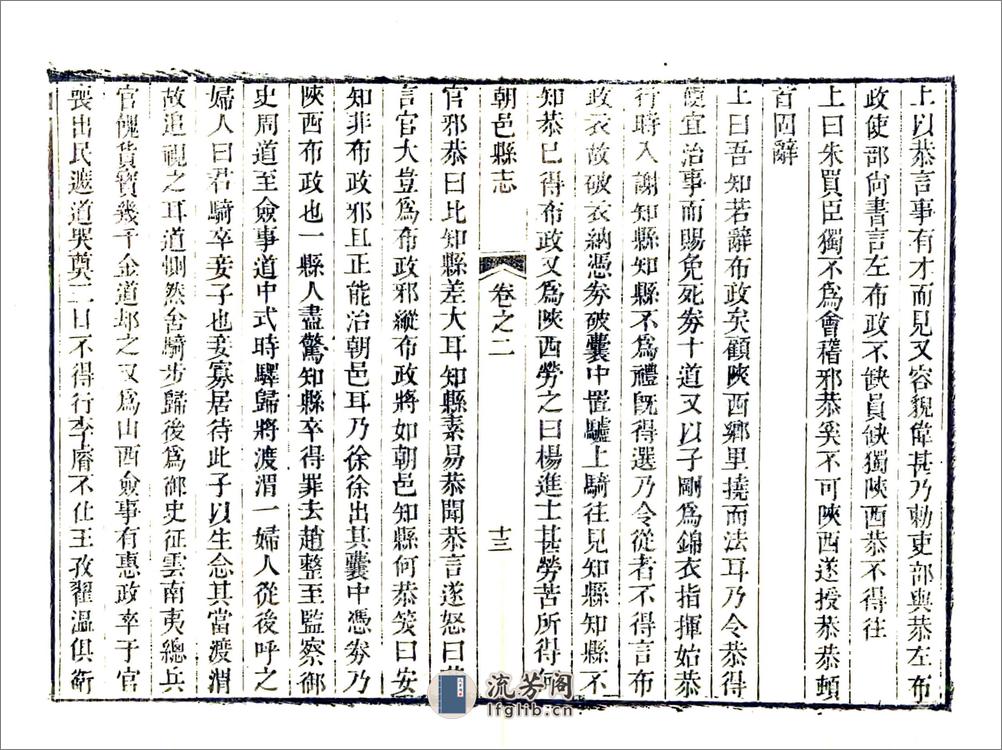 上以恭言事有才而見又容貌偉甚乃勅吏部與恭左布
政使部尙書言左布政不缺員缺獨陝西恭不得往
上曰朱買臣獨不爲會稽邪恭奚不可陝西遂授恭恭頓
首固辭
上曰吾知若辭布政矣顧陝西鄉里撓而法耳乃令恭得
便宜治事而賜免死劵十道又以子剛爲錦衣指揮始恭
行時入謝知縣知縣不爲禮旣得選乃令從者不得言布
政衣故破衣納憑劵破囊中置驢上騎往見知縣知縣不
知恭已得布政又爲陝西勞之曰楊進士甚勞苦所得何
朝邑縣志 卷之二 十三
官邪恭曰比知縣差大耳知縣素易恭聞恭言遂怒曰
言官大豈爲布政邪縱布政將如朝邑知縣何恭笑曰安
知非布政邪且正能治朝邑耳乃徐徐出其囊中憑劵乃
陝西布政也一縣人盡驚知縣卒得罪去趙整至監察御
史周道至僉事道中式時驛歸將渡渭一婦人從後呼之
婦人曰君騎卒妾子也妾寡居待此子以生念其當渡渭
故追視之耳道惻然舍騎步歸後爲御史征雲南夷總兵
官餽貨寶幾千金道却之又爲山西僉事有惠政卒于官
喪出民遮道哭奠二日不得行李睿不仕王孜翟溫俱衛
流芳阁
lfglib.cn